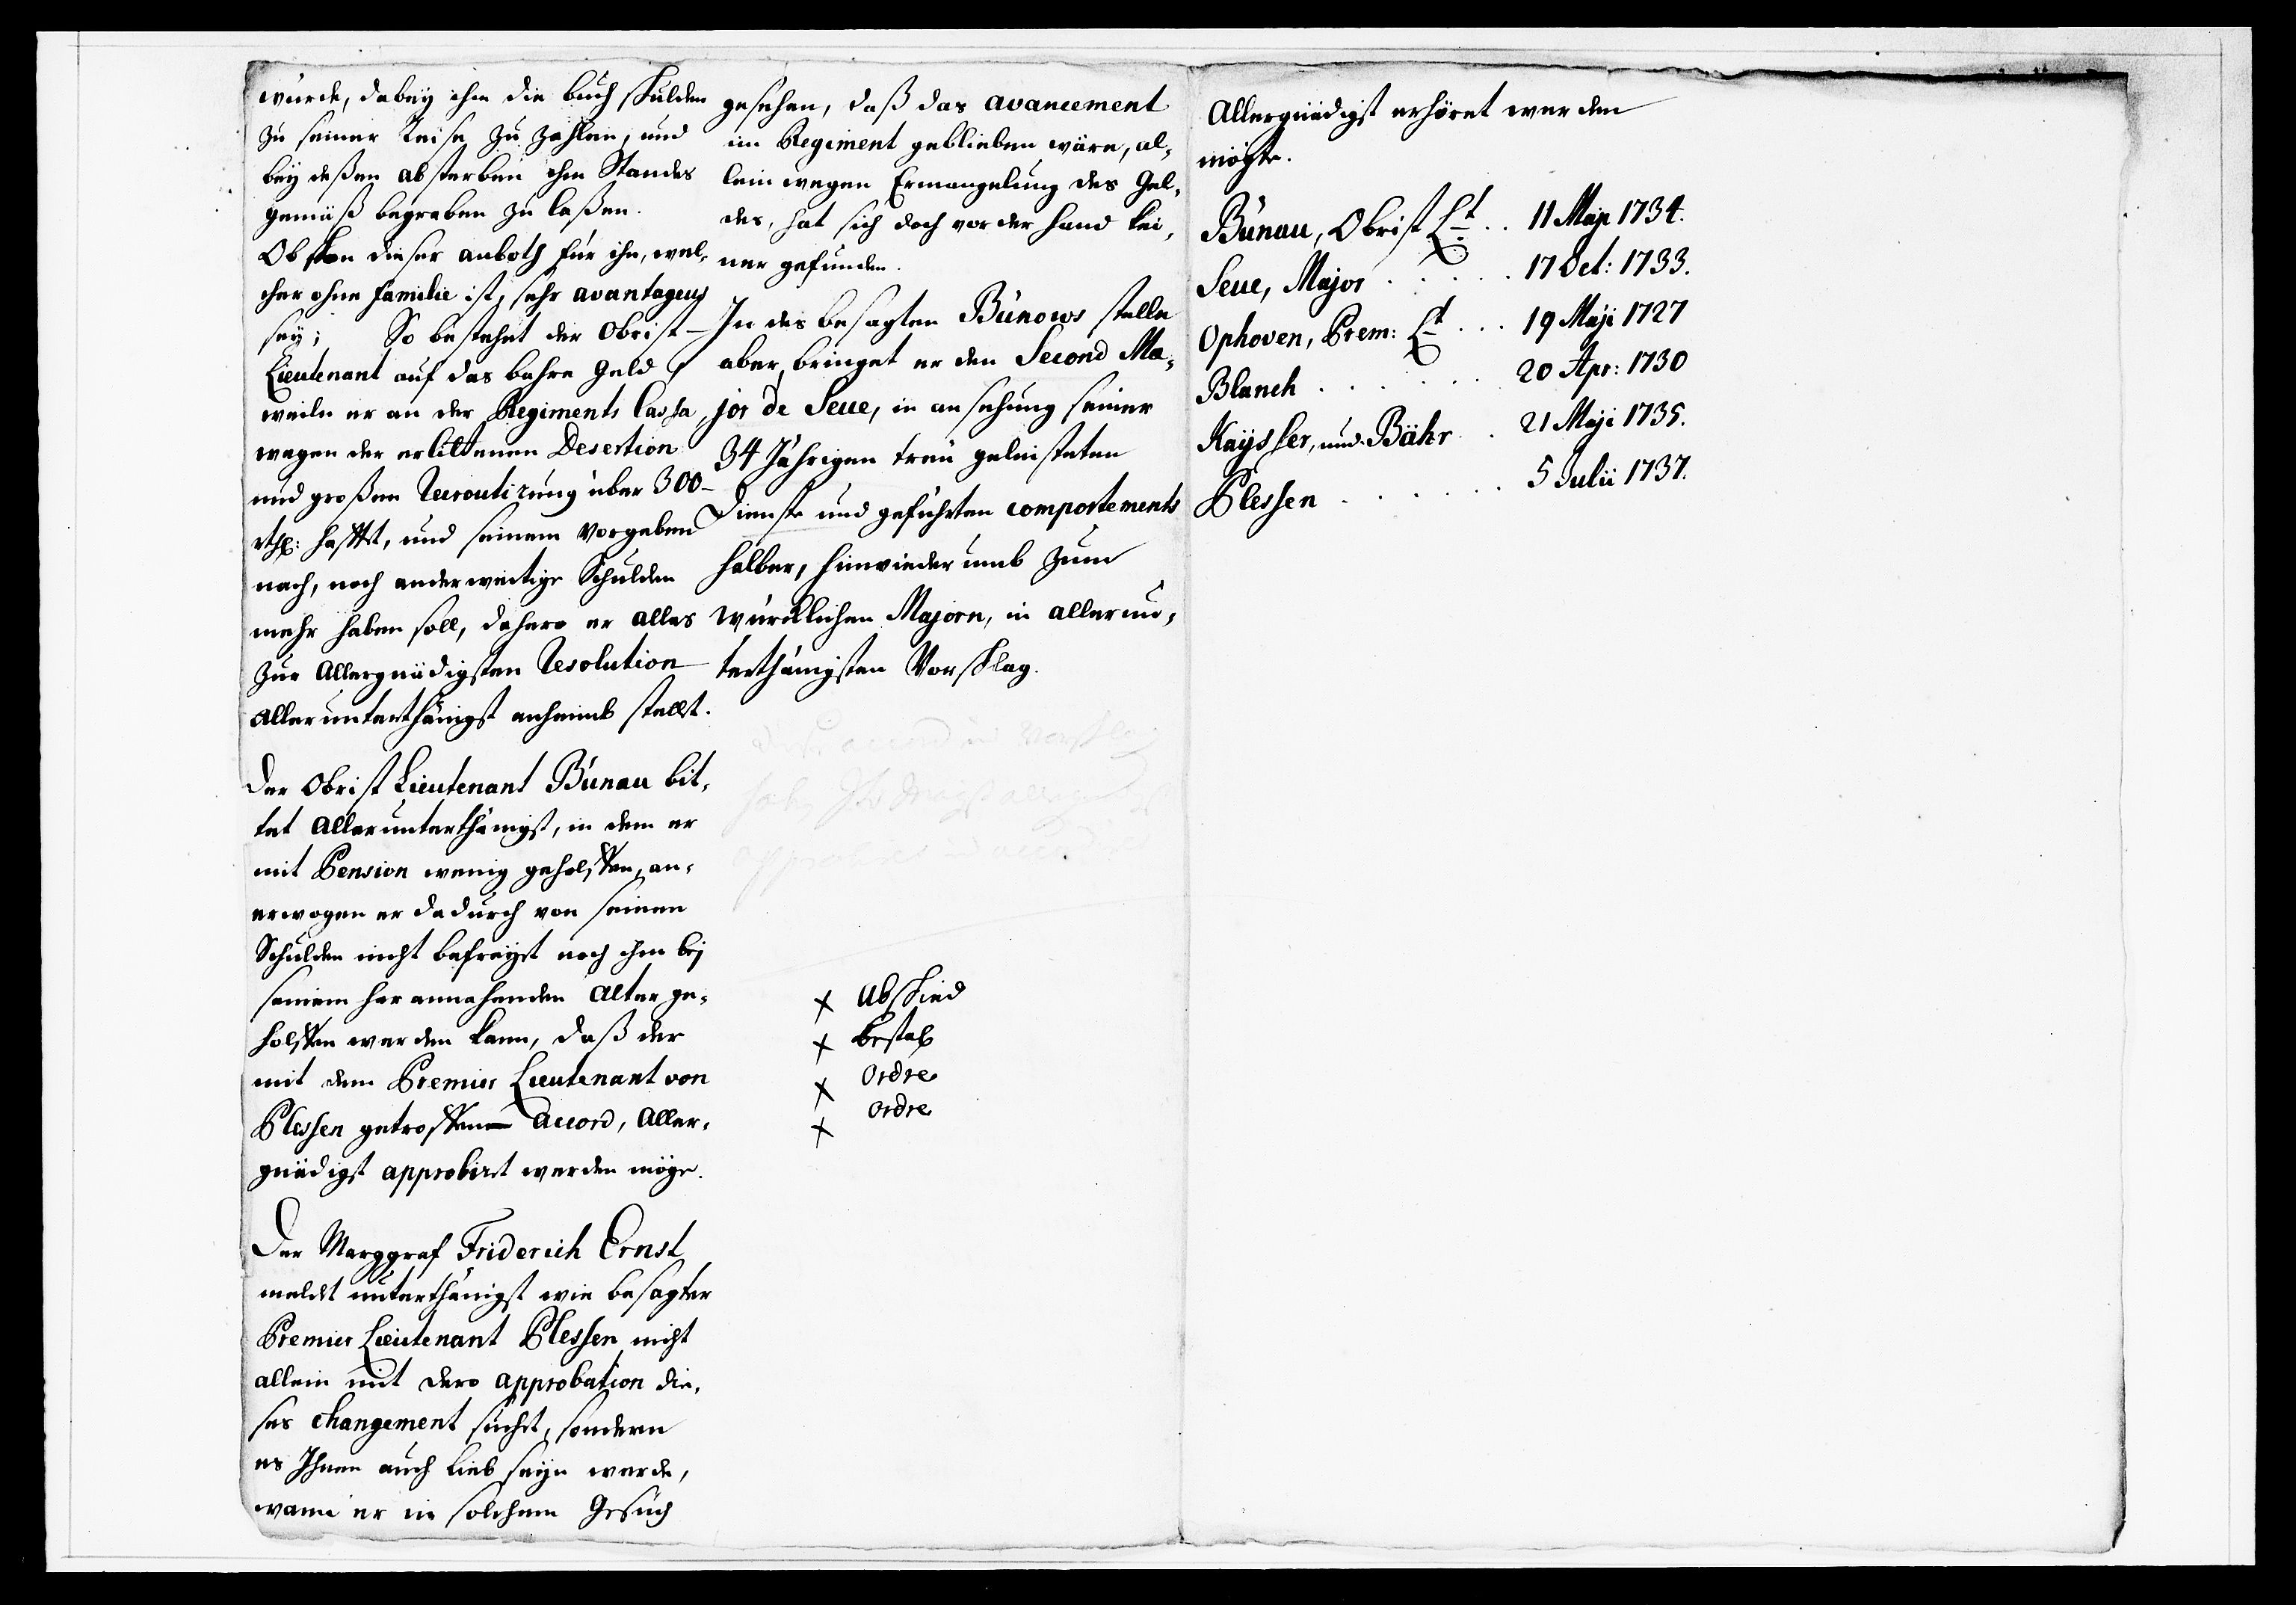 würde, dabey ihm die buch schulden
zu seiner Reise zu zahlen, und
bey deßen absterben ihm Standes
gemäß begraben zu laßen.
Obschon dieser anboth für ihn, wel-
cher ohne familie ist, sehr avantageus
sey; So bestehet der Obrist-
Lieutenant auf das bahre Geld,
weile er an der Regiments Cassa
wegen der erlittenen Desertion
und großen Recroutirung über 300
rthl: hafftet, und seinem Vorgeben
nach, noch anderweitige Schulden
mehr haben soll, dahero er alles
zur Allergnädigsten Resolution
allerunterthänigst anheimb stellet.
Der Obrist Lieutenant Bünau bit-
tet Allerunterthänigst, in dem er
mit Pension wenig geholffen, an-
erwogen er dadurch von seinen
Schulden nicht befreyet noch ihm bey
seinem herannahenden Alter ge-
holffen werden kann, daß der
mit dem Premier Lieutenant von
Plessen getroffene Accord, Aller-
gnädigst approbiret werden möge.
Der Marggraf Friderich Ernst
meldet unterthänigst wie besagter
Premier Lieutenant Plessen nicht
allein mit dero approbation die-
ses changement suchet, sondern
es Ihnen auch lieb seyn werde,
wann er in solchem Gesuch
gesehen, daß das avancement
im Regiment geblieben wäre, al-
lein wegen Ermangelung des Gel-
des, hat sich doch vor der hand kei-
ner gefunden.
In des besagten Bünows stelle
aber, bringet er den Second Ma-
jor de Seue, in ansehung seiner
34 Jährigen treu geleisteten
Dienste und geführten comportements
halber, hinwiederumb zum
würcklichen Majorn, in allerun-
terthänigsten Vorschlag.
x Abschied
x bestal
x Ordre
x ordre
Allergnädigst erhöret werden
mögte.
Bünau, Obrist Lt. . . 11 Maji 1734.
Seue, Major . . . . . 17 Oct: 1733.
Ophoven, Prem: Lt . . . 19 Maji 1727
Blanch . . . . . . 20 Apr: 1730
Kaysser, und Bähr . . 21 Maji 1735.
Plessen . . . . . . 5 Julii 1737.